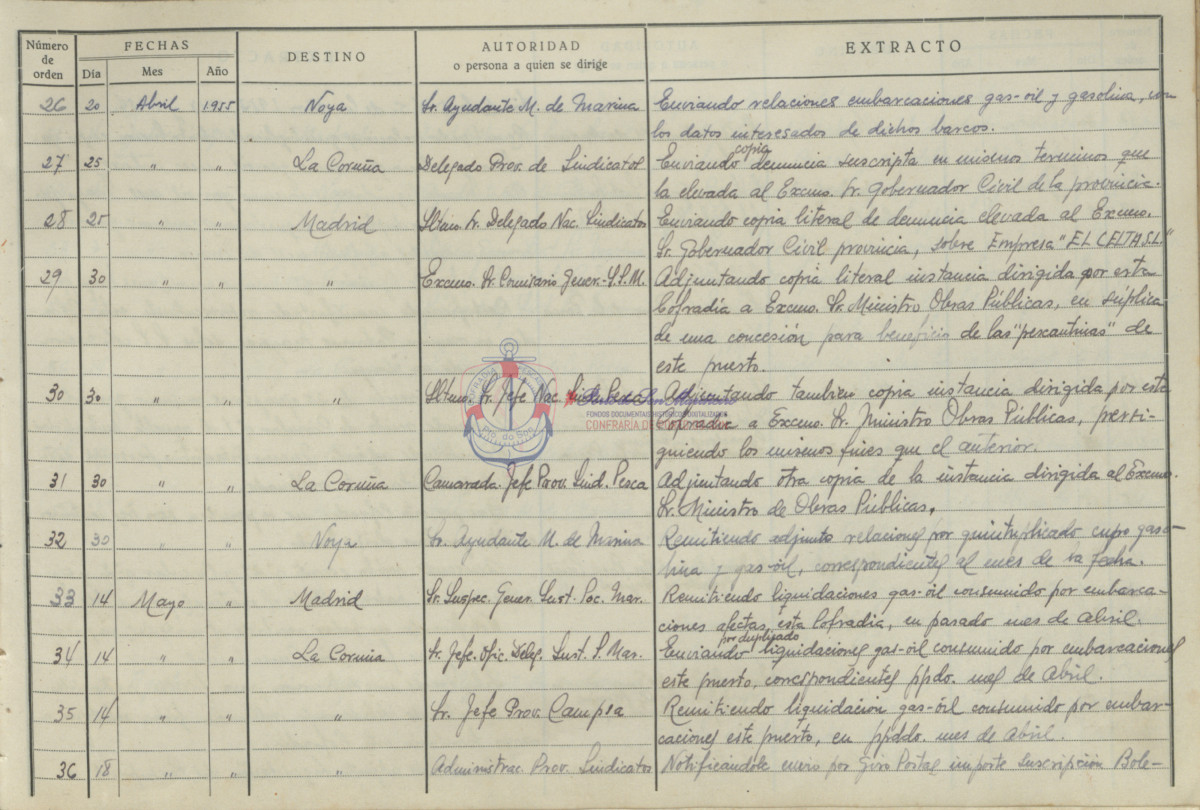 Número de orden FECHAS DESTINO AUTORIDAD o persona a quien se dirige EXTRACTO
Día Mes Año
26 20 Abril 1955 Noya Sr. Ayudante M. de Marina Enviando relaciones embarcaciones gas-oil y gasolina, con
los datos interesados de dichos barcos.
27 25 " " La Coruña Delegado Prov. de Sindicatos Enviando copia denuncia suscripta en mismos terminos que
la elevada al Excmo. Sr. Gobernador Civil de la provincia.
28 25 " " Madrid Iltmo. Sr. Delegado Nac. Sindicatos Enviando copia literal de denuncia elevada al Excmo.
Sr. Gobernador Civil provincia, sobre Empresa "EL CELTA S.L."
29 30 " " " Excmo. Sr. Comisario Gener.- Adjuntando copia literal instancia dirigida por esta
Cofradía a Excmo. Sr. Ministro Obras Públicas, en súplica
de una concesión para beneficio de las "pescantinas" de
este puerto.
30 30 " " " Iltmo. Sr. Jefe Nac. Sind. Pesca Adjuntando tambien copia instancia dirigida por esta
Cofradia a Excmo. Sr. Ministro Obras Públicas, persi-
guiendo los mismos fines que el anterior.
31 30 " " La Coruña Camarada Jefe Prov. Sind. Pesca Adjuntando otra copia de la instancia dirigida al Excmo.
Sr. Ministro de Obras Públicas.
32 30 " " Noya Sr. Ayudante M. de Marina Remitiendo adjunto relaciones por quintuplicado cupo gaso-
lina y gas-oil, correspondientes al mes de la fecha.
33 14 Mayo " Madrid Sr. Inspec. Gener. Inst. Soc. Mar. Remitiendo liquidaciones gas-óil consumido por embarca-
ciones afectas esta Cofradía, en pasado mes de Abril.
34 14 " " La Coruña Sr. Jefe. Ofic. Deleg. Inst. S. Mar. Enviando por duplicado liquidaciones gas-oil consumido por embarcaciones
este puerto, correspondientes ppdo. mes de Abril.
35 14 " " " Sr. Jefe Prov. Campsa Remitiendo liquidación gas-óil consumido por embar-
caciones este puerto, en ppddo. mes de Abril.
36 18 " " " Administrac. Prov. Sindicatos Notificándole envio por Giro Postal importe suscripción Bole-
FONDOS DOCUMENTAIS HISTÓRICOS DIXITALIZADOS